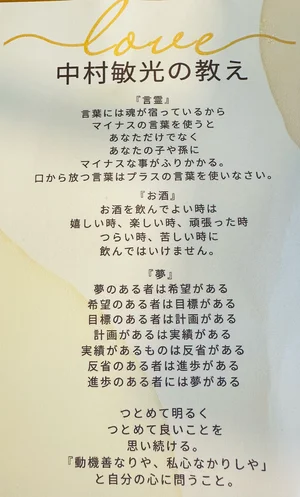 love
中村敏光の教え
『言霊』
言葉には魂が宿っているから
マイナスの言葉を使うと
あなただけでなく
あなたの子や孫に
マイナスな事がふりかかる。
口から放つ言葉はプラスの言葉を使いなさい。
『お酒』
お酒を飲んでよい時は
嬉しい時、楽しい時、頑張った時
つらい時、苦しい時に
飲んではいけません。
『夢』
夢のある者は希望がある
希望のある者は目標がある
目標のある者は計画がある
計画があるは実績がある
実績があるものは反省がある
反省のある者は進歩がある
進歩のある者には夢がある
つとめて明るく
つとめて良いことを
思い続ける。
『動機善なりや、私心なかりしや』
と自分の心に問うこと。